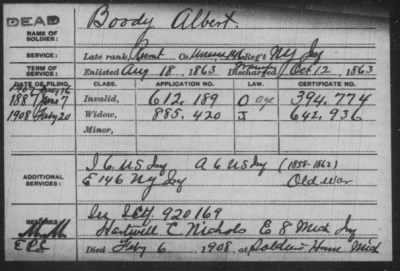 DEAD
NAME OF SOLDIER: Boody Albert.
SERVICE: Late rank, Co. Reg't NY Inf
TERM OF SERVICE: Enlisted Aug 18, 1863 Discharged Oct 12, 1863
DATE OF FILING. CLASS. APPLICATION NO. LAW. CERTIFICATE NO.
Invalid, 612,189 O age 394,774
188 June 7
1908 Feby 20 Widow, 885,420 J 642,936
Minor,
ADDITIONAL SERVICES: I C US Inf A 6 US Inf (1858-1862)
E 146 NY Inf Old War
REMARKS: 920169
Hartwell C. Nichols E 8 Mich Inf
EPL Died Feby 6, 1908, at Soldiers Home Mich